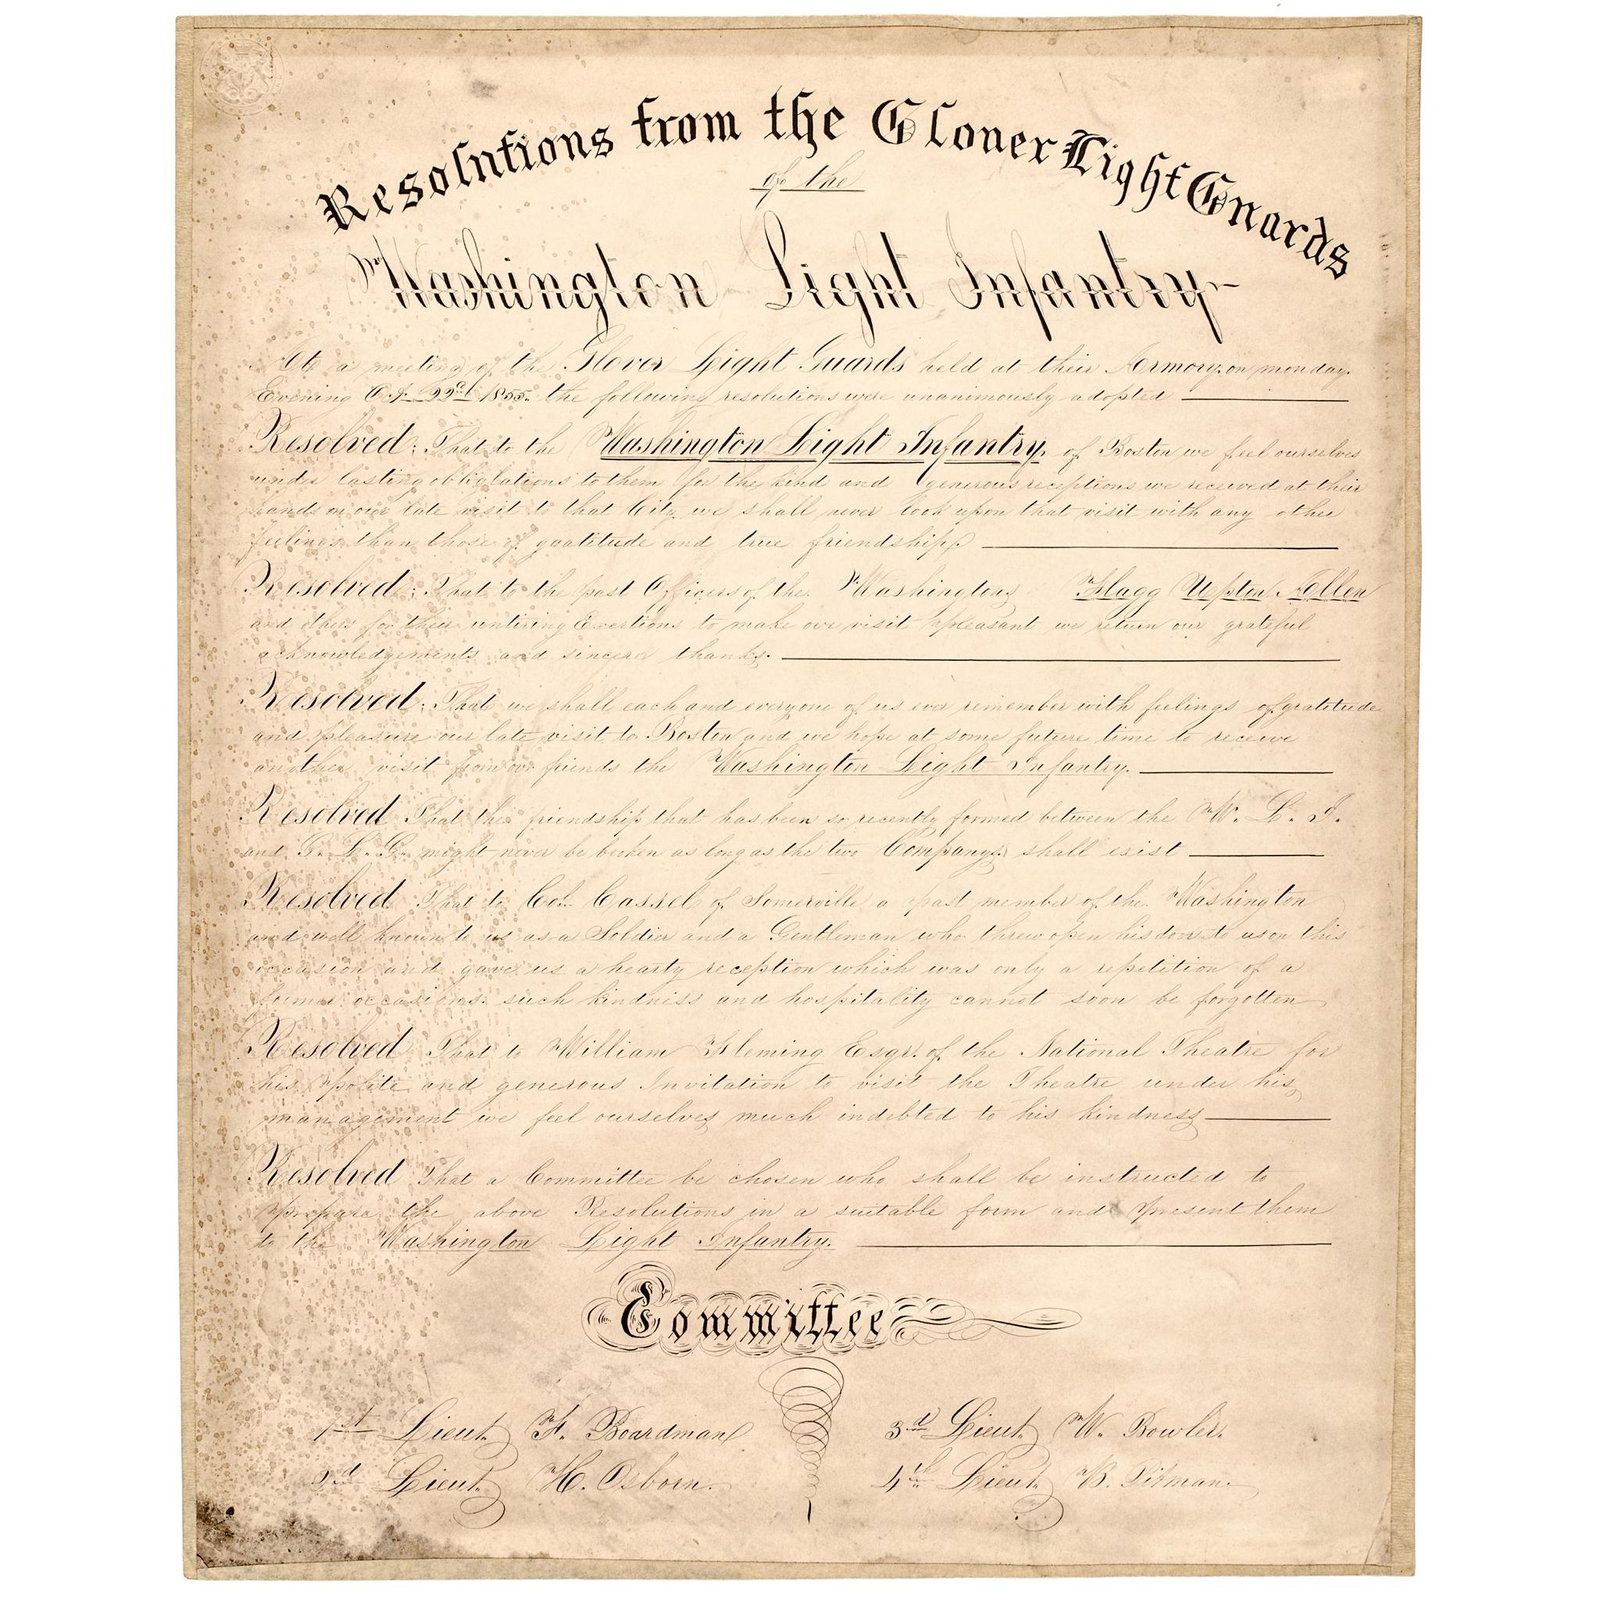 Resolutions from the Glover Light Guards
of the
Washington Light Infantry
At a meeting of the Glover Light Guards held at their Armory, on monday.
Evening Oct. 22d 1855. the following resolutions were unanimously adopted
Resolved; That to the Washington Light Infantry, of Boston we feel ourselves
under lasting obliglations to them for the kind and generous receptions we received at their
hands on our late visit to that City, we shall never look upon that visit with any other
feelings than those of gratitude and true friendship
Resolved; That to the past Officers of the Washingtons Flagg Upton Allen
and others for their untiring Exertions to make our visit pleasant we return our grateful
acknowledgements and sincere thanks.
Resolved; That we shall each and everyone of us ever remember with feelings of gratetude
and pleasure our late visit to Boston and we hope at some future time to receive
another visit from our friends the Washington Light Infantry.
Resolved That the friendship that has been so recently formed between the W. L. I.
and G. L. G. might never be broken as long as the two Companys shall exist
Resolved That to Col. Cassel of Somerville a past member of the Washington
and well known to us as a Soldier and a Gentleman who threw open his doors to us on this
occasion and gave us a hearty reception which was only a repetition of a
former occasions such kindness and hospitality cannot soon be forgotten
Resolved That to William Fleming Esqr. of the National Theatre for
his polite and generous Invitation to visit the Theatre under his
management we feel ourselves much indebted to his kindness
Resolved That a Committee be chosen who shall be instructed to
prepare the above Resolutions in a suitable form and present them
to the Washington Light Infantry.
Committee
1st Lieut F. Boardman
3d Lieut W. Bowler.
2d Lieut H. Osborn.
4th Lieut B. Pitman.